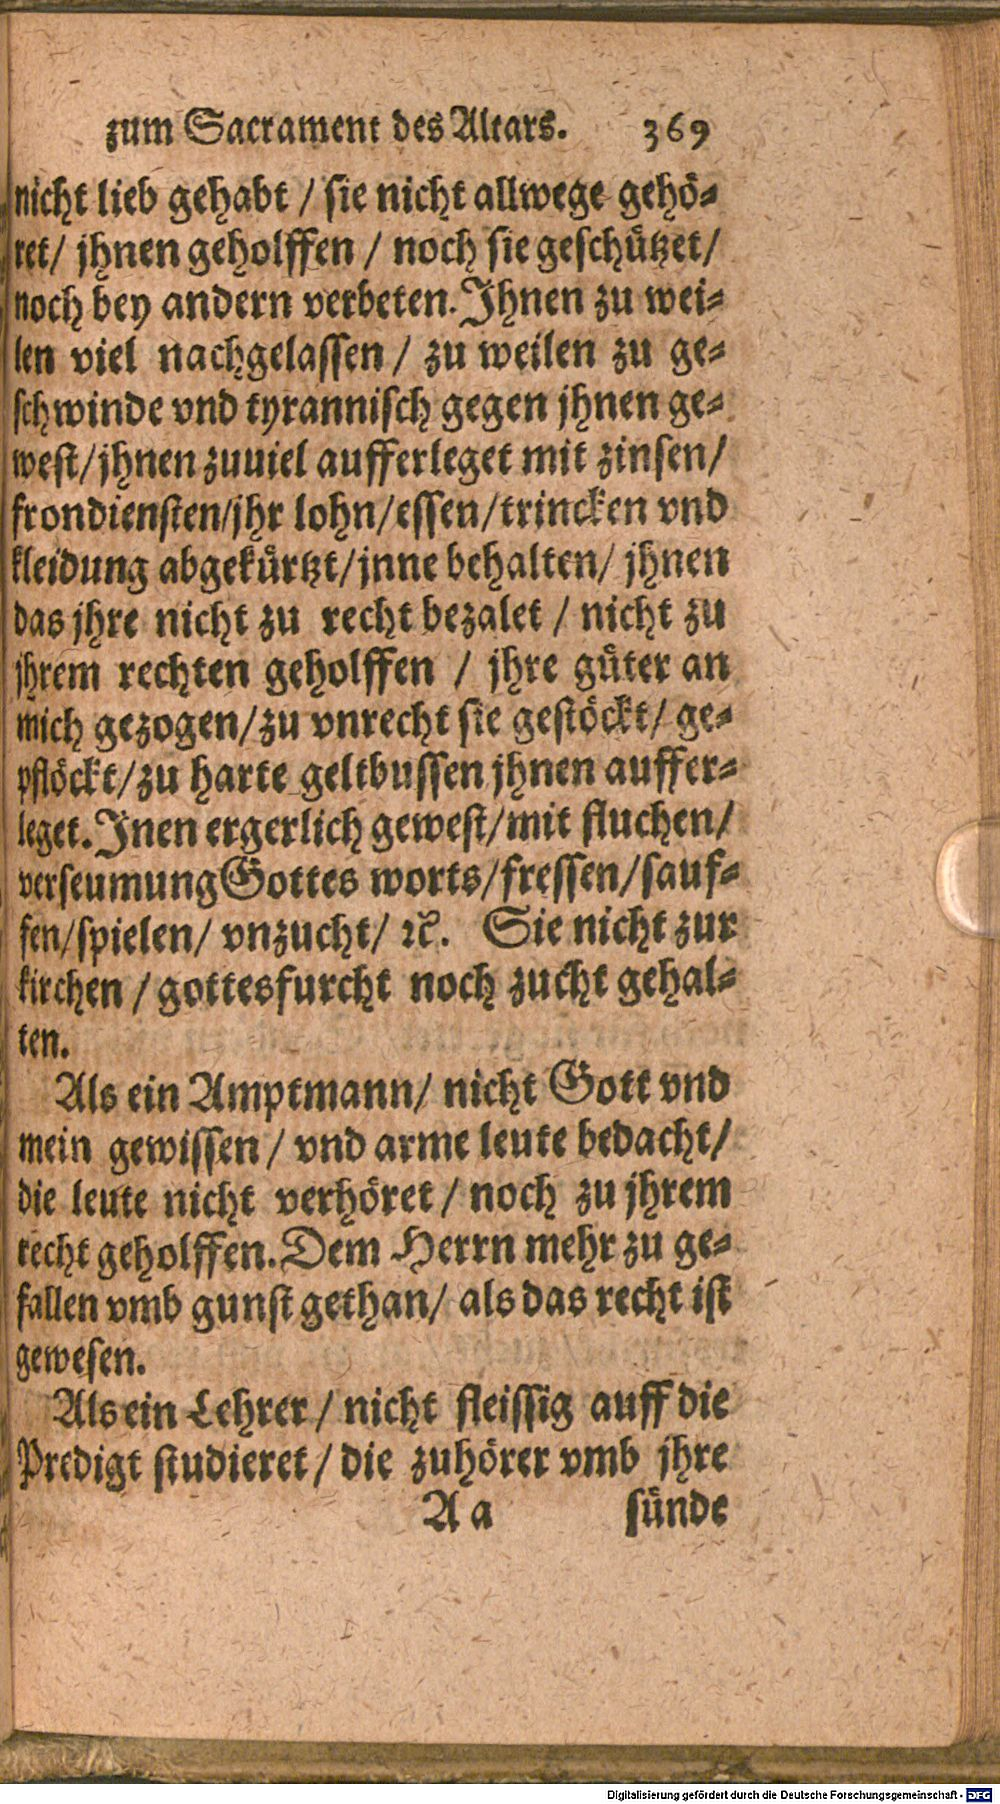 zum Sacrament des Altars. 369
nicht lieb gehabt / sie nicht allwege gehö-
ret/ jhnen geholffen / noch sie geschützet/
noch bey andern verbeten. Ihnen zu wei-
len viel nachgelassen / zu weilen zu ge-
schwinde vnd tyrannisch gegen jhnen ge-
west/jhnen zuuiel aufferleget mit zinsen/
frondiensten/jhr lohn/essen/trincken vnd
kleidung abgekürtzt/jnne behalten/ jhnen
das jhre nicht zu recht bezalet / nicht zu
jhrem rechten geholffen / jhre güter an
mich gezogen/zu vnrecht sie gestöckt/ ge-
pflöckt/zu harte geltbussen jhnen auffer-
leget. Inen ergerlich gewest/mit fluchen/
verseumung Gottes worts/fressen/sauf-
fen/spielen/ vnzucht/ ꝛc. Sie nicht zur
kirchen / gottesfurcht noch zucht gehal-
ten.
Als ein Amptmann/ nicht Gott vnd
mein gewissen / vnd arme leute bedacht/
die leute nicht verhöret / noch zu jhrem
recht geholffen. Dem Herrn mehr zu ge-
fallen vmb gunst gethan/ als das recht ist
gewesen.
Als ein Lehrer / nicht fleissig auff die
Predigt studieret / die zuhörer vmb jhre
A a sünde
Digitalisierung gefördert durch die Deutsche Forschungsgemeinschaft - DFG